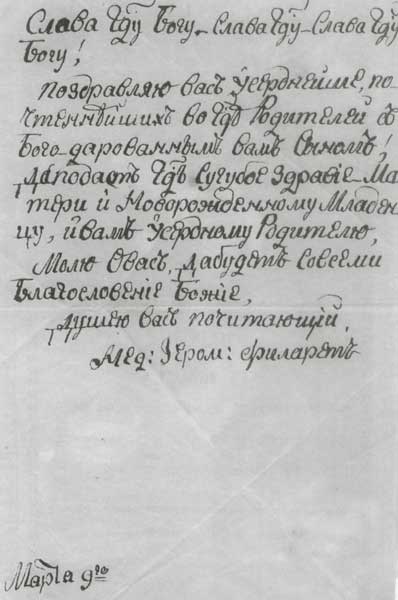 Слава Гдꙋ Богу. Слава Гдꙋ. Слава Гдꙋ
Богу!
Поздравляю васъ Ѹсерднейше, по-
чтеннѣйшихъ во Гдѣ Родителей съ
Бого-дарованнымъ вамъ Сыномъ!
Даподастъ Гдь Сугубое Здравіе Ма-
тери и Новорожденному Младен-
цу, и вамъ Ѹсердному Родителю,
Молю Овасъ, дабудетъ Совсеми
Благословеніе Божіе,
душею васъ почитающій,
Мед: Іером: Филаретъ
Марта 9го